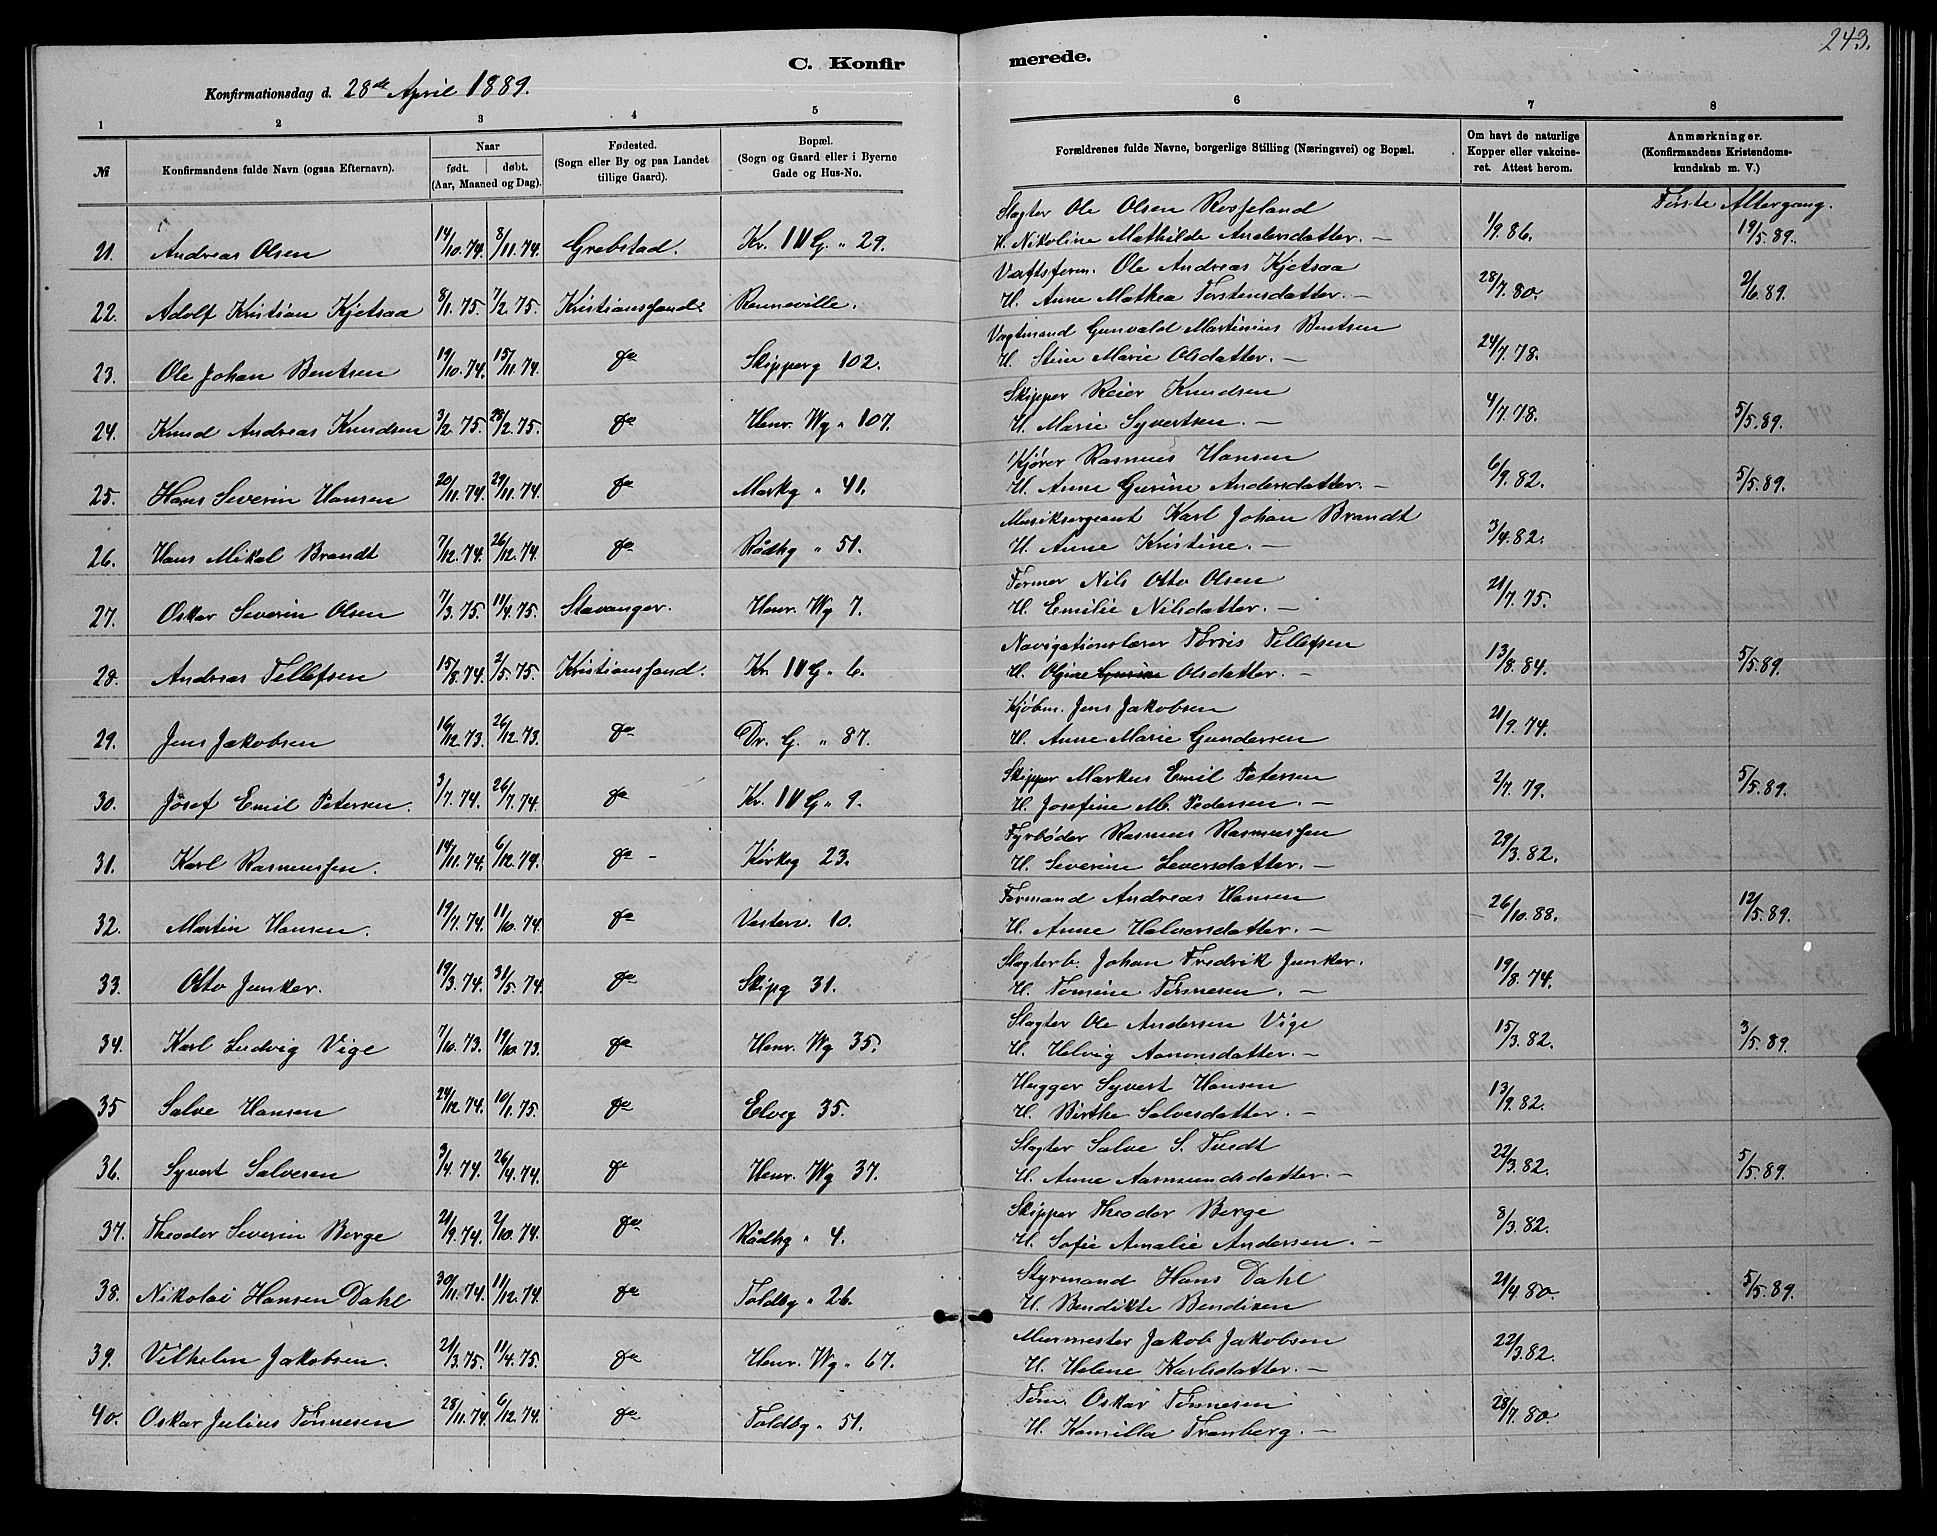 243.
C. Konfirmerede.
Konfirmationsdag d. 28de April 1889.
1 2 3 4 5 6 7 8
№ Konfirmandens fulde Navn (ogsaa Efternavn). Naar født. døbt. (Aar, Maaned og Dag). Fødested. (Sogn eller By og paa Landet tillige Gaard). Bopæl. (Sogn og Gaard eller i Byerne Gade og Hus-No. Forældrenes fulde Navne, borgerlige Stilling (Næringsvei) og Bopæl. Om havt de naturlige Kopper eller vakcineret. Attest herom. Anmærkninger. (Konfirmandens Kristendomskundskab m. V.)
Første Altergang.
21. Andreas Olsen 14/10.74. 8/11.74. Grebstad. Kr. IV G. " 29. Slagter Ole Olsen Rosseland 1/9.86. 19/5.89.
H. Nikoline Mathilde Andersdatter. —
22. Adolf Kristian Kjetsaa 8/1.75. 7/2.75. Kristianssand. Ronneville. Værftsform. Ole Andreas Kjetsaa 28/7.80. 2/6.89.
H. Anne Mathea Torstensdatter. —
23. Ole Johan Bentsen 19/10.74. 15/11.74. do Skipperg 102. Vagtmand Gunvald Martinius Bentsen 24/7.78.
H. Stine Marie Olsdatter. —
24. Knud Andreas Knudsen 3/2.75. 28/2.75. do Henr. Wg " 107. Skipper Reier Knudsen 4/7.78. 5/5.89.
H. Marie Syvertsen. —
25. Hans Severin Hansen 20/11.74. 29/11.74. do Markg " 41. Kjører Rasmus Hansen 6/9.82. 5/5.89.
H. Anne Gurine Andersdatter. —
26. Hans Mikal Brandt 7/12.74. 26/12.74. do Rådhg " 51. Musiksergeant Karl Johan Brandt 3/4.82.
H. Anne Kristine. —
27. Oskar Severin Olsen 7/3.75. 11/4.75. Stavanger. Henr. Wg 7. Former Nils Otto Olsen 21/7.75.
H. Emilie Nilsdatter. —
28. Andreas Tellefsen 15/8.74. 2/5.75. Kristianssand. Kr. IV G. 6. Navigationslærer Torris Tellefsen 13/8.84. 5/5.89.
H. Olsdatter. —
29. Jens Jakobsen 16/12.73. 26/12.73. do Dr. G. " 87. Kjøbm. Jens Jakobsen 21/9.74.
H. Anne Marie Gundersen
30. Josef Emil Petersen. 3/7.74. 26/7.74. do Kr. IV G. 9. Skipper Markus Emil Petersen 2/7.79. 5/5.89.
H. Josefine M. Pedersen. —
31. Karl Rasmussen. 19/11.74. 6/12.74. do — Kirkeg 23. Fyrbøder Rasmus Rasmussen 29/3.82.
H. Severine Seversdatter. —
32. Martin Hansen. 19/7.74. 11/10.74. do Vesterv. 10. Formand Andreas Hansen 26/10.88. 12/5.89.
H. Anne Halvorsdatter. —
33. Otto Junker. 19/3.74. 31/5.74. do Skipg 31. Slagterb. Johan Fredrik Junker. 19/8.74.
H. Tomine Tønnesen. —
34. Karl Ludvig Vige 7/10.73. 19/10.73. do Henr. Wg 35. Slagter Ole Andersen Vige 15/3.82. 3/5.89.
H. Helvig Aanonsdatter. —
35 Salve Hansen 24/12.74. 10/1.75. do Elveg 35. Hugger Syvert Hansen 13/9.82.
H. Birthe Salvesdatter. —
36. Syvert Salvesen 3/4.74. 26/4.74. do Henr. Wg 37. Slagter Salve S. Tvedt 22/3.82. 5/5.89.
H. Anne Aasmundsdatter. —
37. Theodor Severin Berge 21/9.74. 2/10.74. do Rådhg " 4. Skipper Theodor Berge 8/3.82.
H. Sofie Amalie Andersen. —
38. Nikolai Hansen Dahl 30/11.74. 11/12.74. do Toldbg " 26. Styrmand Hans Dahl 21/4.80. 5/5.89.
H. Bendikte Bendixen
39. Vilhelm Jakobsen. 21/3.75. 11/4.75. do Henr. Wg " 67. Murmester Jakob Jakobsen 22/3.82.
H. Helene Karlsdatter. —
40. Oskar Julius Tønnesen 28/11.74. 6/12.74. do Toldbg " 51. Tøm. Oskar Tønnesen 28/7.80.
H. Kamilla Tranberg. —